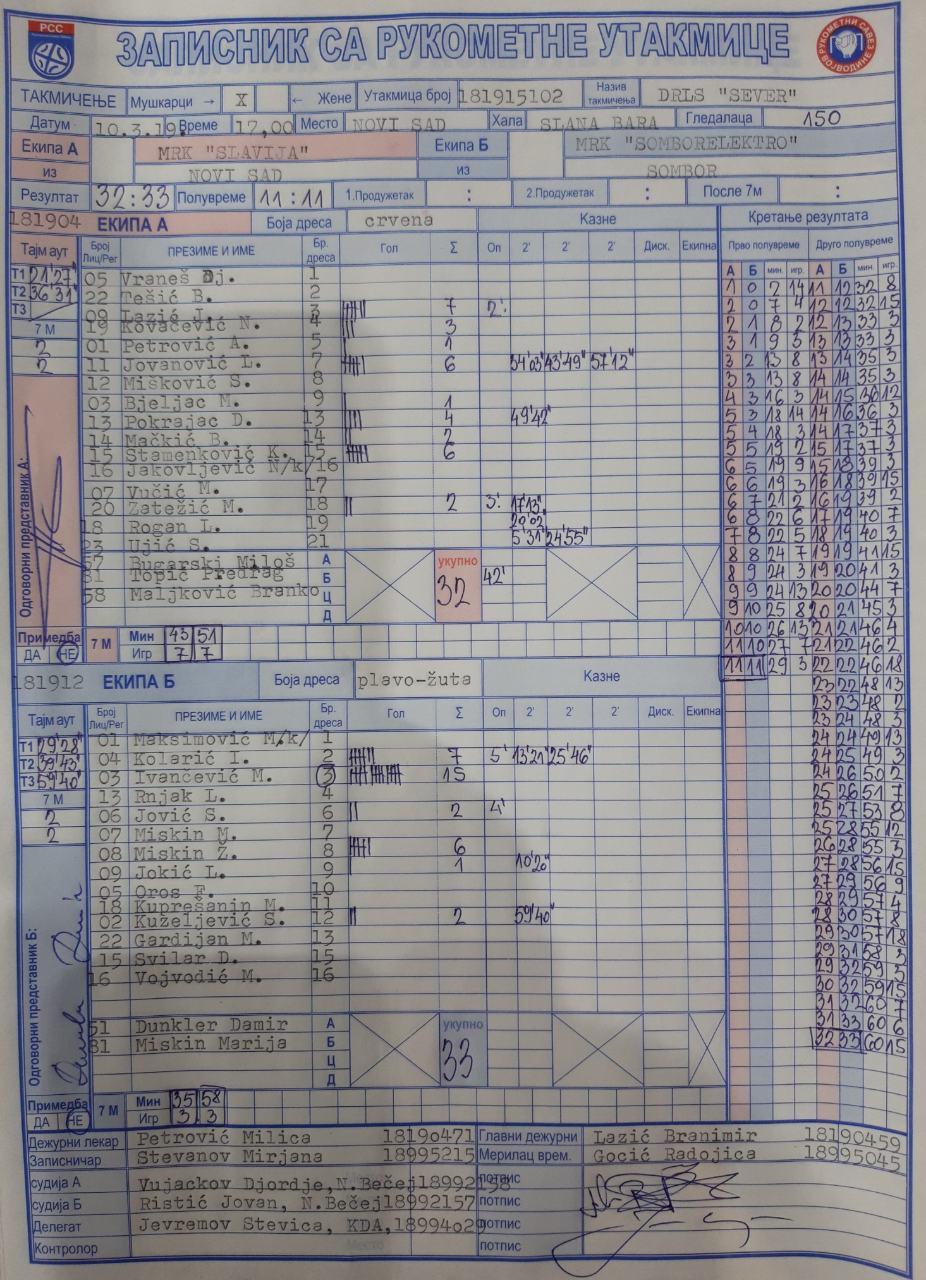 РСС
РУКОМЕТНИ САВЕЗ
ЗАПИСНИК СА РУКОМЕТНЕ УТАКМИЦЕ
ТАКМИЧЕЊЕ Мушкарци → X ← Жене Утакмица број 181915102 Назив такмичења DRLS "SEVER"
Датум 10.3.19. Време 17,00 Место NOVI SAD Хала SLANA BARA Гледалаца 150
Екипа А MRK "SLAVIJA" Екипа Б MRK "SOMBORELEKTRO"
из NOVI SAD из SOMBOR
Резултат 32:33 Полувреме 11:11 1.Продужетак : 2.Продужетак : После 7м :
181904 ЕКИПА А Боја дреса crvena Казне
Тајм аут Број Лиц/Рег ПРЕЗИМЕ И ИМЕ Бр. дреса Гол Σ Оп 2' 2' 2' Диск. Екипна
T1 21'27"
T2 36'31"
T3
7 М
2
2
05 Vraneš Dj. 1
22 Tešić B. 2
09 Lazić J. 3 7 2'
19 Kovačević N. 4 3
01 Petrović A. 5 1
11 Jovanović L. 7 6 34'03" 43'49" 57'12"
12 Mišković S. 8
03 Bjeljac M. 9 1
13 Pokrajac D. 13 4 49'42"
14 Mačkić B. 14 2
15 Stamenković K. 15 6
16 Jakovljević N/k/16
07 Vučić M. 17
20 Zatežić M. 18 2 3' 17'13"
18 Rogan L. 19 29'02"
23 Ujić S. 21 5'31" 24'55"
57 Bugarski Miloš А
81 Topić Predrag Б 42'
58 Maljković Branko Ц
Д
укупно 32
Одговорни представник А:
Примедба ДА НЕ
7 М Мин 43 51
Игр 7 7
181912 ЕКИПА Б Боја дреса plavo-žuta Казне
Тајм аут Број Лиц/Рег ПРЕЗИМЕ И ИМЕ Бр. дреса Гол Σ Оп 2' 2' 2' Диск. Екипна
T1 29'28"
T2 39'43"
T3 59'40"
7 М
2
2
01 Maksimović M/k/ 1
04 Kolarić I. 2 7 5' 13'21" 25'46"
03 Ivančević M. 3 15
13 Rnjak L. 4
06 Jović S. 6 2 4'
07 Miskin M. 7
08 Miskin Ž. 8 6
09 Jokić L. 9 1 10'20"
05 Oros F. 10
18 Kuprešanin M. 11
02 Kuželjević S. 12 2 59'40"
22 Gardijan M. 13
15 Svilar D. 15
16 Vojvodić M. 16
51 Dunkler Damir А
81 Miskin Marija Б
Ц
Д
укупно 33
Одговорни представник Б:
Примедба ДА НЕ
7 М Мин 35 58
Игр 3 3
Кретање резултата
Прво полувреме Друго полувреме
А Б мин. игр. А Б мин. игр.
1 0 2 14 11 12 32 8
2 0 7 4 12 12 32 15
2 1 8 2 12 13 33 3
3 1 9 3 13 13 33 3
3 2 13 8 13 14 35 3
3 3 13 8 14 14 35 3
4 3 16 3 14 15 36 12
5 3 18 14 14 16 36 3
5 4 18 3 14 17 37 3
5 5 19 2 15 17 37 3
6 5 19 9 15 18 39 3
6 6 19 3 16 18 39 15
6 7 21 2 16 19 39 2
6 8 22 6 17 19 40 7
7 8 22 5 18 19 40 3
8 8 24 7 19 19 41 15
8 9 24 3 19 20 41 3
9 9 24 13 20 20 44 7
9 10 25 8 20 21 45 3
10 10 26 13 21 21 46 4
11 10 27 7 21 22 46 2
11 11 29 3 22 22 46 18
23 22 48 13
23 23 48 2
23 24 48 3
24 24 49 13
24 25 49 3
24 26 50 2
25 26 51 7
25 27 53 8
25 28 55 12
26 28 55 3
27 28 56 15
27 29 56 9
28 29 57 4
28 30 57 8
29 30 57 18
29 31 58 3
29 32 59 3
30 32 59 15
31 32 60 7
31 33 60 6
32 33 60 15
Дежурни лекар Petrović Milica 18190471 Главни дежурни Lazić Branimir 18190459
Записничар Stevanov Mirjana 18995215 Мерилац врем. Gocić Radojica 18995045
судија А Vujackov Djordje,N.Bečej18992158 потпис
судија Б Ristić Jovan, N.Bečej18992157 потпис
Делегат Jevremov Stevica, KDA,18994029 потпис
Контролор Место потпис